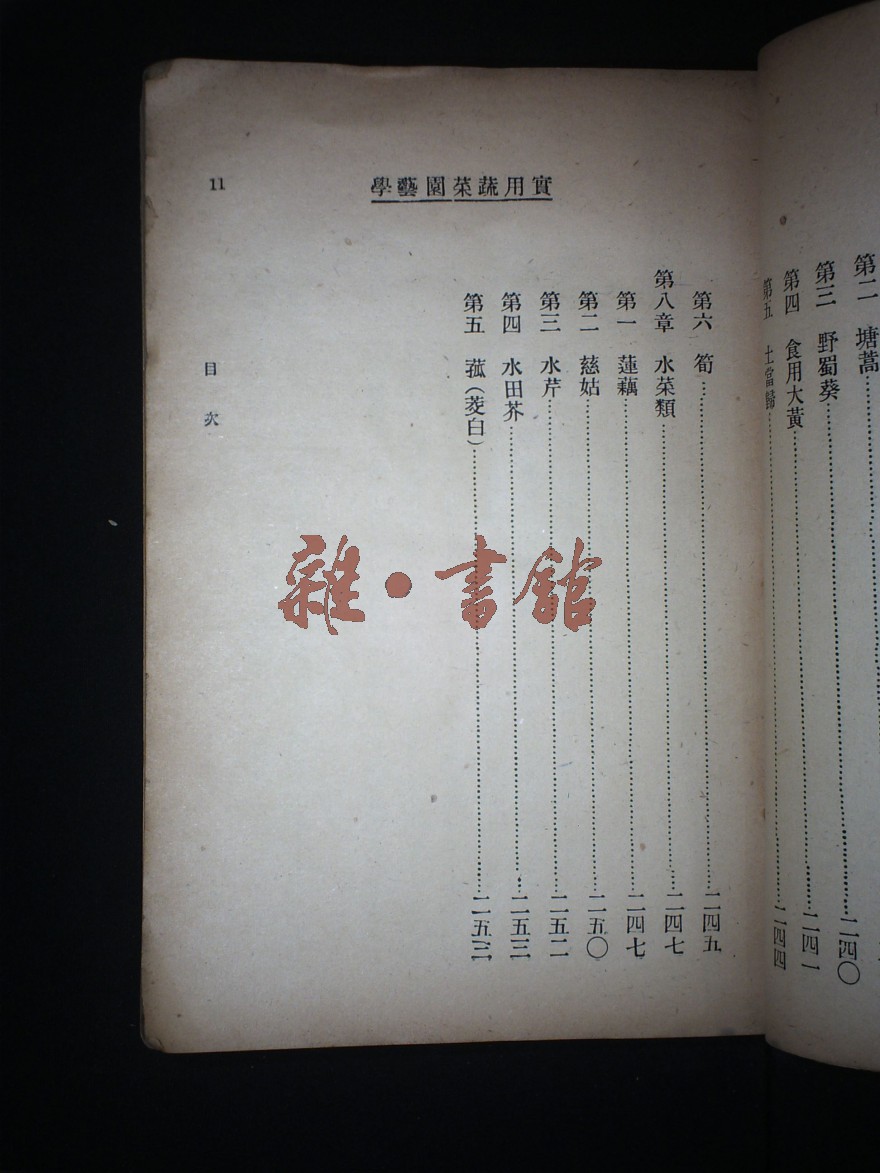 第二　塘蒿……二四〇
第三　野蜀葵……二四一
第四　食用大黃……二四一
第五　土當歸……二四四
實用蔬菜園藝學
11
第六　筍……二四五
第八章　水菜類……二四七
第一　蓮藕……二四七
第二　慈姑……二五〇
第三　水芹……二五二
第四　水田芥……二五三
第五　菰(茭白)……二五三
目次
雜·書館